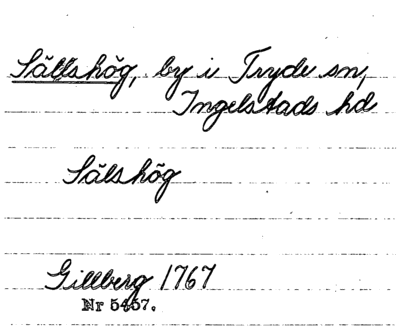 Sällshög, by i Tryde sn,
Ingelstads hd
Sälshög
Gillberg 1767
Nr 5457.